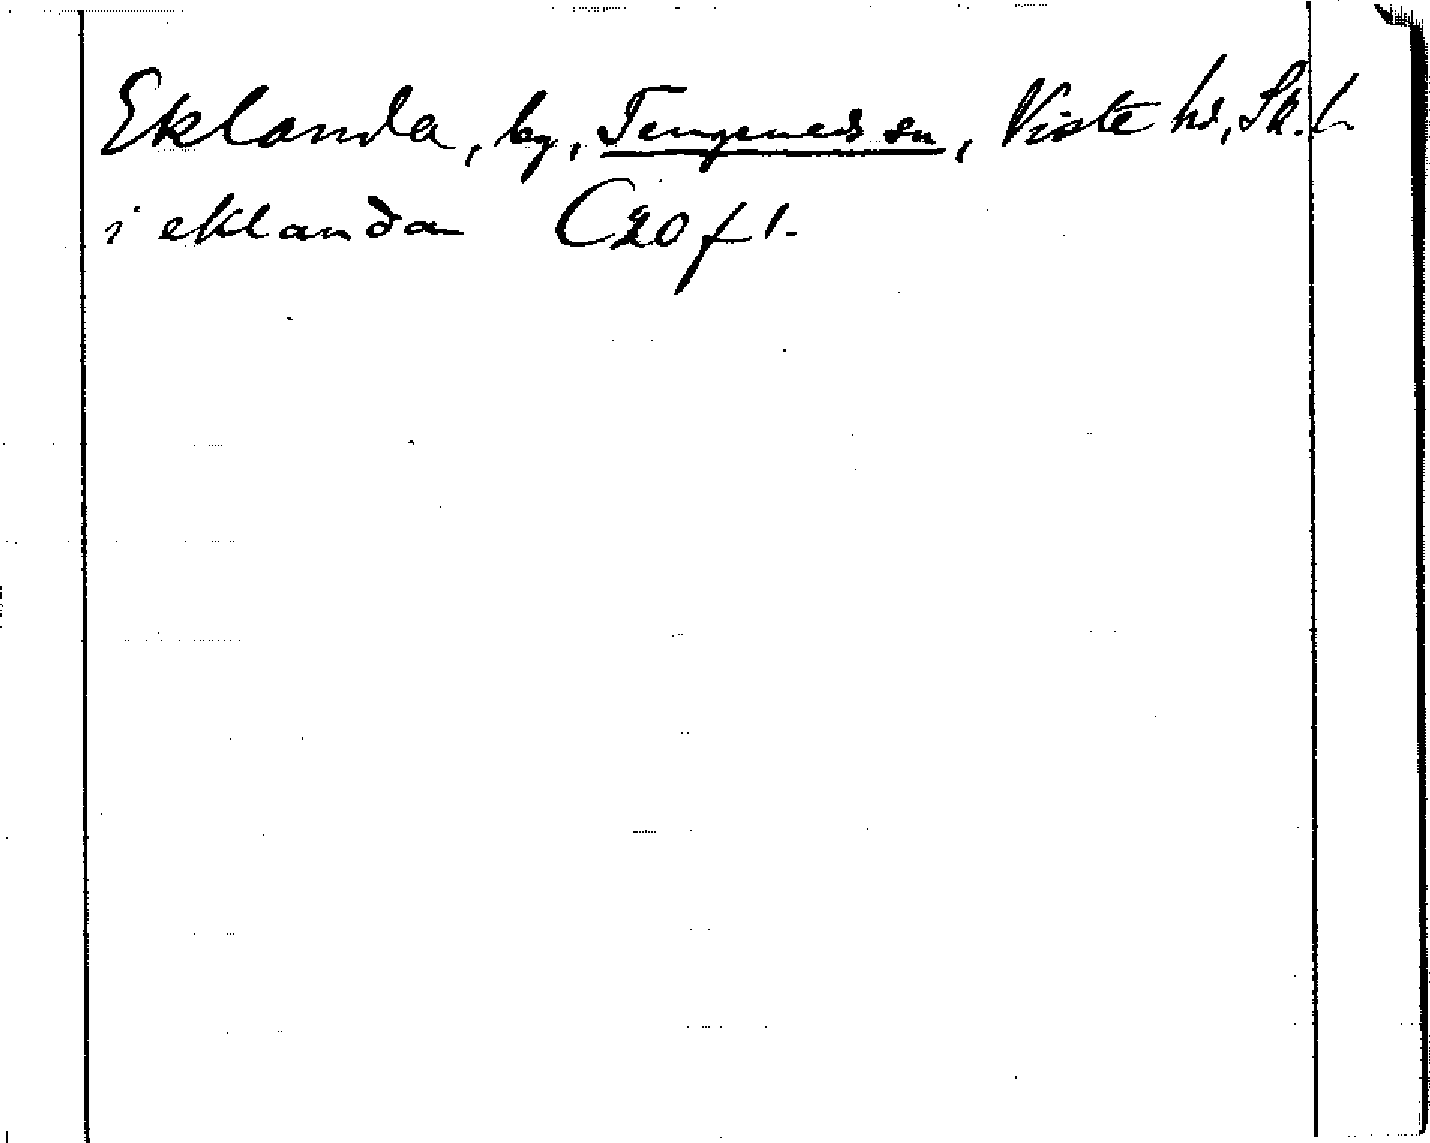 Eklanda, by, Tengeneds sn, Viste hd, Sk.l.
i eklandom C20 f 1.